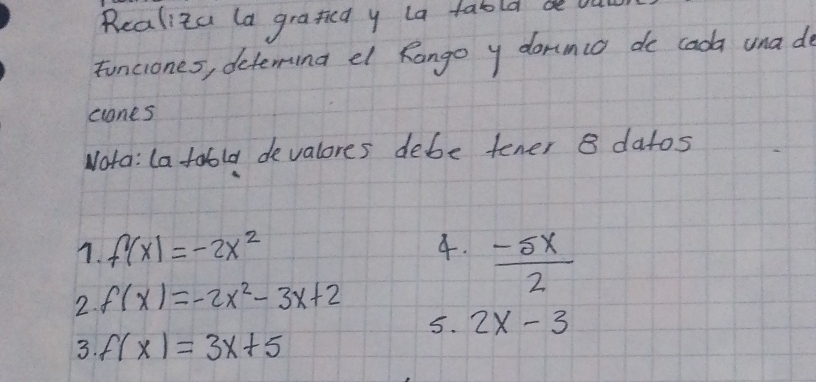 Realiza la grafica y la tabla de
funciones, determina el Rango y dominio de cada una de
ciones
Nota: la tabla de valores debe tener 8 datos
1. f(x) = -2x²
2. f(x) = -2x² - 3x + 2
3. f(x) = 3x + 5
4. -5x / 2
5. 2x - 3